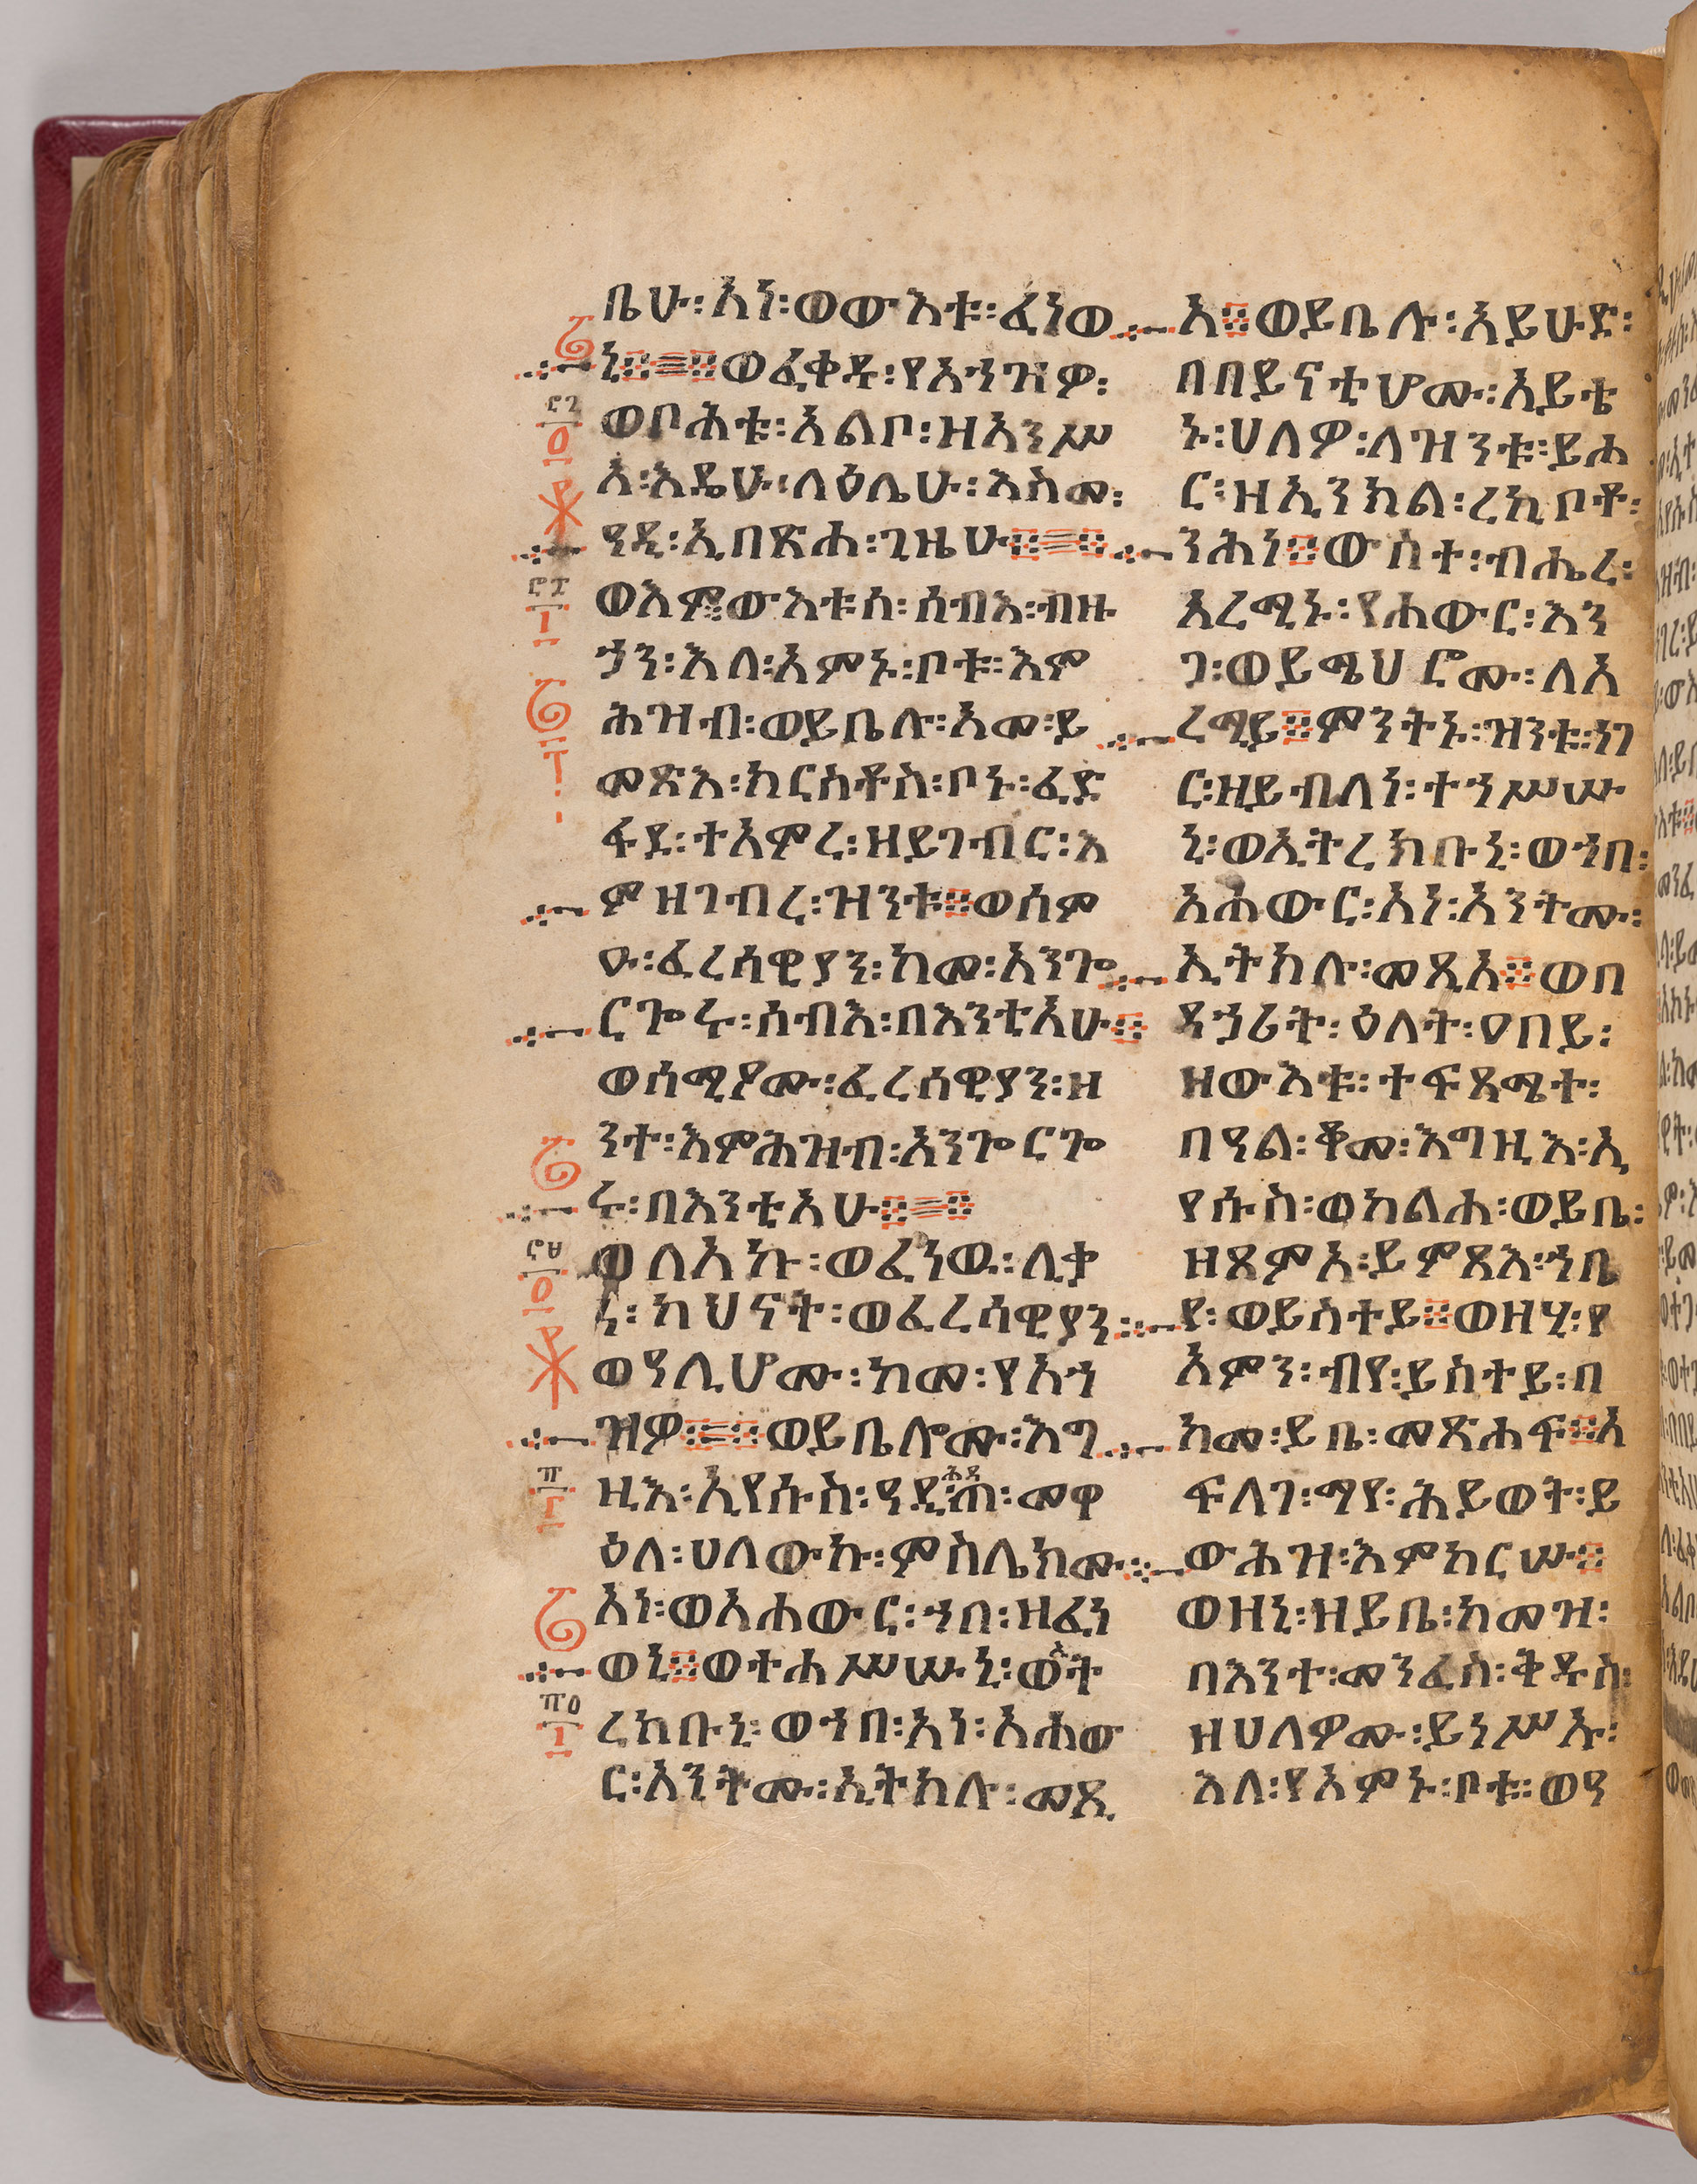 ቤሁ፡አነ፡ወውእቱ፡ፈነወ
ኒ፨ወፈቀዱ፡የአኀዝዎ፡
ወቦሕቱ፡አልቦ፡ዘአንሥ
አ፡እዴሁ፡ላዕሌሁ፡እስመ፡
ዓዲ፡ኢበጽሐ፡ጊዜሁ፨
ወእምውእቱስ፡ሰብእ፡ብዙ
ኃን፡እለ፡አምኑ፡ቦቱ፡እም
ሕዝብ፡ወይቤሉ፡አመ፡ይ
መጽእ፡ክርስቶስ፡ቦኑ፡ፈድ
ፋደ፡ተአምረ፡ዘይገብር፡እ
ምዘገብረ፡ዝንቱ፨ወሰም
ዑ፡ፈረሳዊያን፡ከመ፡አንጐ
ርጐሩ፡ሰብእ፡በእንቲአሁ፨
ወሰሚዖሙ፡ፈረሰዊያን፡ዘ
ንተ፡እምሕዝብ፡አንጐርጐ
ሩ፡በእንቲአሁ፨
ወለአኩ፡ወፈነዉ፡ሊቃ
ነ፡ካህናት፡ወፈረሳዊያን
ወዓሊሆሙ፡ከመ፡የአኀ
ዝዎ፨ወይቤሎሙ፡እግ
ዚእ፡ኢየሱስ፡ዓዲ፡ሕዳጠ፡መዋ
ዕለ፡ሀለውኩ፡ምስሌክሙ፡
አነ፡ወአሐውር፡ኀበ፡ዘፈነ
ወኒ፨ወተሐሥሡኒ፡ወኢት
ረክቡኒ፡ወኀበ፡አነ፡አሐው
ር፡አንትሙ፡ኢትክሉ፡መጺ
አ፨ወይቤሉ፡አይሁድ፡
በበይናቲሆሙ፡አይቴ
ኑ፡ሀለዎ፡ለዝንቱ፡ይሐ
ር፡ዘኢንክል፡ረኪቦቶ፡
ንሕነ፨ውስተ፡ብሔረ፡
አረሚኑ፡የሐውር፡እን
ጋ፡ወይሜህሮሙ፡ለአ
ረሚይ፨ምንትኑ፡ዝንቱ፡ነገ
ር፡ዘይብለነ፡ተኀሥሡ
ኒ፡ወኢትረክቡኒ፡ወኀበ፡
አሐውር፡አነ፡አንትሙ፡
ኢትክሉ፡መጺአ፨ወበ
ዳኃሪት፡ዕለት፡ዐበይ፡
ዘውእቱ፡ተፍጻሜተ፡
በዓል፡ቆመ፡እግዚእ፡ኢ
የሱስ፡ወከልሐ፡ወይቤ፡
ዘጸምአ፡ይምጻእ፡ኀቤ
የ፡ወይስተይ፨ወዘሂ፡የ
አምን፡ብየ፡ይስተይ፡በ
ከመ፡ይቤ፡መጽሐፍ፨አ
ፍላገ፡ማየ፡ሕይወት፡ይ
ውሕዝ፡እምከርሡ፨
ወዘኒ፡ዘይቤ፡ከመዝ፡
በእንተ፡መንፈስ፡ቅዱስ፡
ዘሀለዎሙ፡ይነሥኡ፡
እለ፡የአምኑ፡ቦቱ፡ወዓ